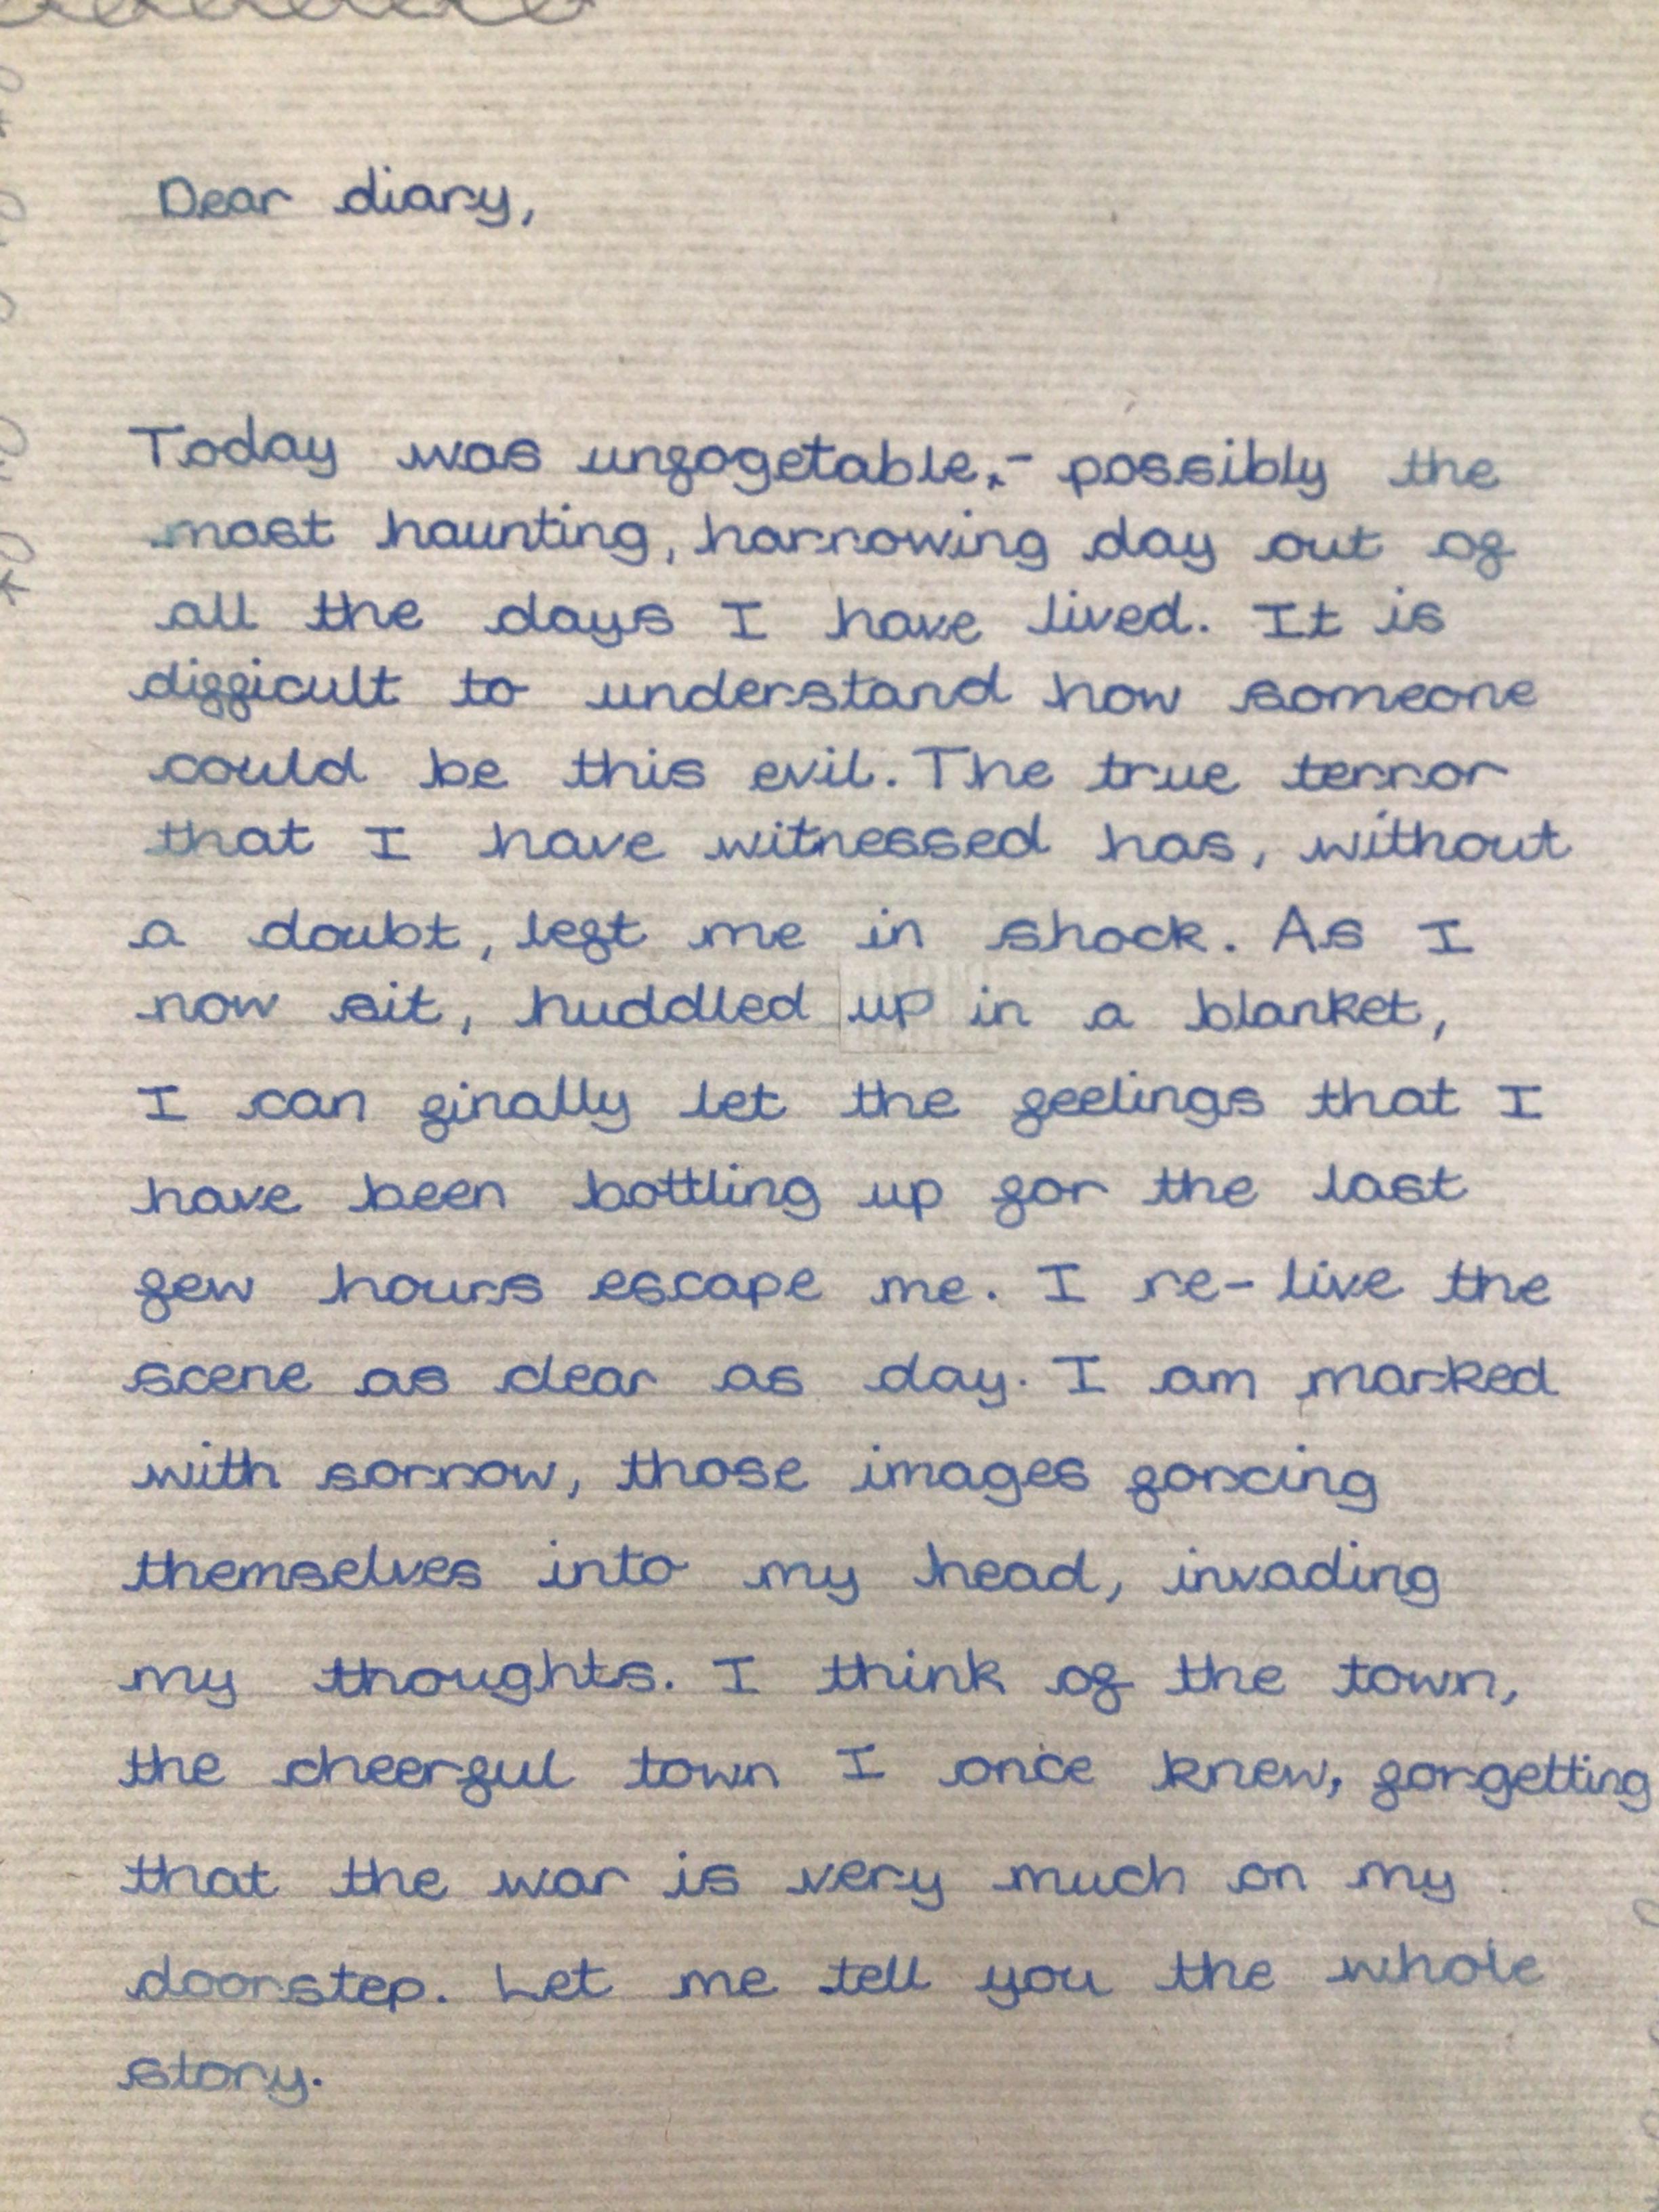 Dear diary,
Today was unfogetable,- possibly the
most haunting, harrowing day out of
all the days I have lived. It is
difficult to understand how someone
could be this evil. The true terror
that I have witnessed has, without
a doubt, left me in shock. As I
now sit, huddled up in a blanket,
I can finally let the feelings that I
have been bottling up for the last
few hours escape me. I re-live the
scene as clear as day. I am marked
with sorrow, those images forcing
themselves into my head, invading
my thoughts. I think of the town,
the cheerful town I once knew, forgetting
that the war is very much on my
doorstep. Let me tell you the whole
story.